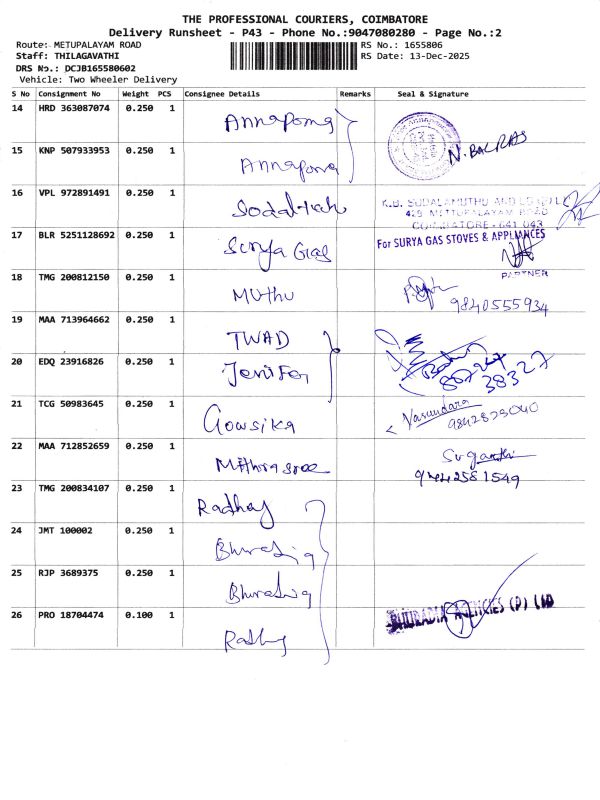 THE PROFESSIONAL COURIERS, COIMBATORE
Delivery Runsheet - P43 - Phone No.:9047080280 - Page No.:2
Route: METUPALAYAM ROAD
RS No.: 1655806
Staff: THILAGAVATHI
RS Date: 13-Dec-2025
DRS No.: DCJB165580602
Vehicle: Two Wheeler Delivery
S No Consignment No Weight PCS Consignee Details Remarks Seal & Signature
14 HRD 363087074 0.250 1 Annapoma
15 KNP 507933953 0.250 1 Annapoma
N. BALRAS
16 VPL 972891491 0.250 1
K.B. SUDALAIMUTHU AND
429 METTUPALAYAM ROAD
COIMBATORE - 641 043
17 BLR 5251128692 0.250 1 Surya Gas
For SURYA GAS STOVES & APPLIANCES
PARTNER
18 TMG 200812150 0.250 1 Muthu
9840555934
19 MAA 713964662 0.250 1 TWAD
20 EDQ 23916826 0.250 1 Jenifer
80727
38327
21 TCG 50983645 0.250 1 Gowsika
Vasundara
9842873040
22 MAA 712852659 0.250 1 Mithrasree
Suganthi
9442581549
23 TMG 200834107 0.250 1
24 JMT 100002 0.250 1
25 RJP 3689375 0.250 1
26 PRO 18704474 0.100 1
BHURADIA AGENCIES (P) LTD